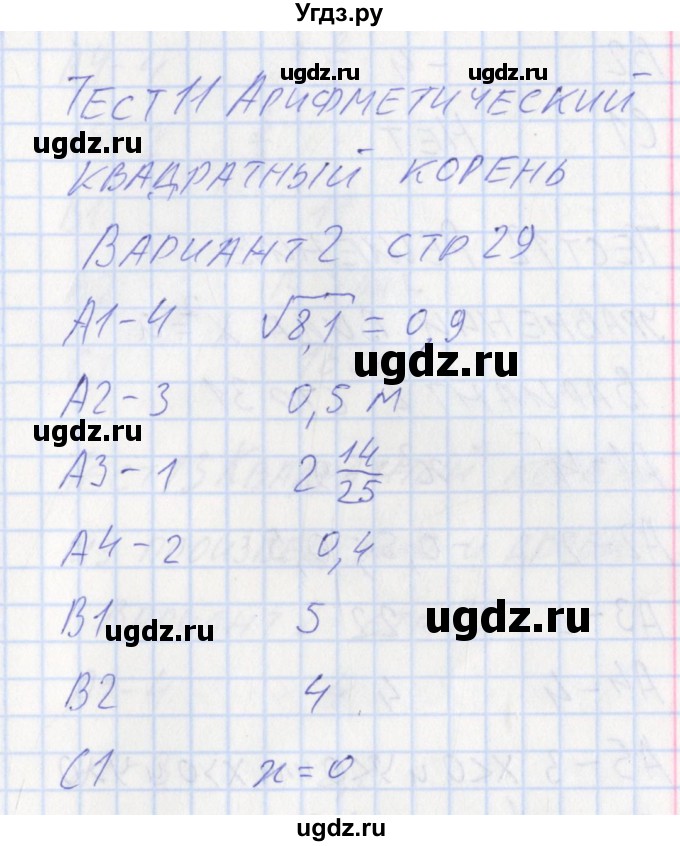 Угдз.ру
ugdz.ru ugdz.ru
ТЕСТ 11 АРИФМЕТИЧЕСКИЙ
ugdz.ru
КВАДРАТНЫЙ КОРЕНЬ
ВАРИАНТ 2 СТР 29
А1-4 √8,1 = 0,9
ugdz.ru
А2-3 0,5 м
ugdz.ru
А3-1 2 14/25
А4-2 0,4
В1 5
ugdz.ru ugdz.ru
В2 4
С1 x=0
ugdz.ru